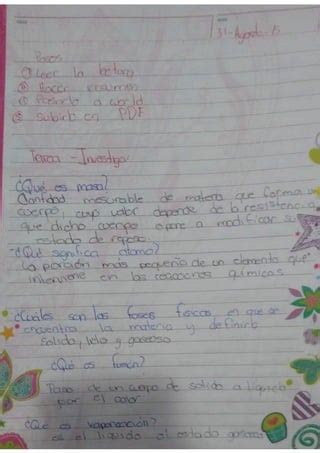 31-Agosto-15
Pasos
① Leer la lectura
② Hacer resumen
③ Pasarlo a world
④ subirlo en PDF
Tarea - Investigar
¿Qué es masa?
Cantidad mesurable de materia que forma un
cuerpo, cuyo valor depende de la resistencia a
que dicho cuerpo opone a modificar su
estado de reposo.
¿Qué significa atomo?
La porción más pequeña de un elemento que
interviene en las reacciones químicas
¿Cuáles son las fases físicas en que se
encuentra la materia y definirlo
Solido, liquido y gaseoso
¿Qué es fusión?
Paso de un cuerpo de solido a liquido
por el calor
¿Qué es vaporización?
es el liquido al estado gaseoso